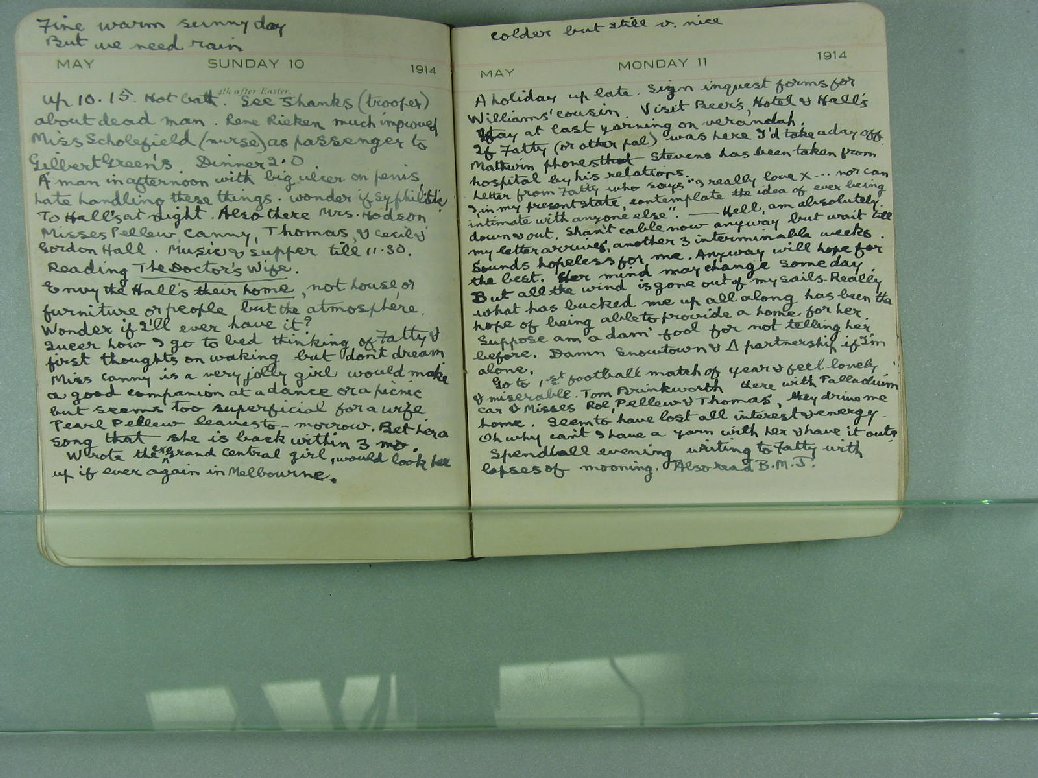 Fine warm sunny day
But we need rain
MAY SUNDAY 10 1914
4th after Easter.
Up 10.15 Hot bath. See Shanks (trooper)
about dead man. Rene Rieken much improved
Miss Scholefield (nurse) as passenger to
Gilbert Green's. Dinner 2.0
A man in afternoon with big ulcer on penis
hate handling these things. wonder if syphilitic
To Hall's at night. Also there Mrs. Hodson
Misses Pellew Canny, Thomas, & Cecil &
Gordon Hall. Music & supper till 11.30.
Reading The Doctor's Wife.
Envy the Hall's their home, not house or
furniture or people but the atmosphere
Wonder if I'll ever have it?
Queer how I go to bed thinking of Fatty &
first thoughts on waking but don't dream
Miss Canny is a very jolly girl would make
a good companion at a dance or a picnic
but seems too superficial for a wife
Pearl Pellew leaves to-morrow. Bet her a
song that she is back within 3 mo.
Wrote the Grand Central girl, would look her
up if ever again in Melbourne.
colder but still v. nice
MAY MONDAY 11 1914
A holiday up late. Sign inquest forms for
Williams' cousin. Visit Beer's Hotel & Hall's
stay at last yarning on verandah.
If Fatty (or other pal) was here I'd take a day off
phones that Stevens has been taken from
hospital by his relations.
Letter from Fatty who says "I really love X ... nor can
I, in my present state, contemplate the idea of ever being
intimate with anyone else". — Hell, am absolutely
down & out. Shan't cable now anyway but wait till
my letter arrives, another 3 interminable weeks.
Sounds hopeless for me. Anyway will hope for
the best. Her mind may change some day
But all the wind is gone out of my sails. Really
what has bucked me up all along has been the
hope of being able to provide a home for her.
Suppose am a damn fool for not telling her
before. Damn Snowtown & Δ partnership if I'm
alone.
Go to 1st football match of year & feel lonely
& miserable. Tom Brinkworth there with Palladium
car & Misses Roe, Pellew & Thomas, they drive me
home. Seem to have lost all interest & energy.
Oh why can't I have a yarn with her & have it out.
Spend all evening writing to Fatty with
lapses of mooning. Also read B.M.J.